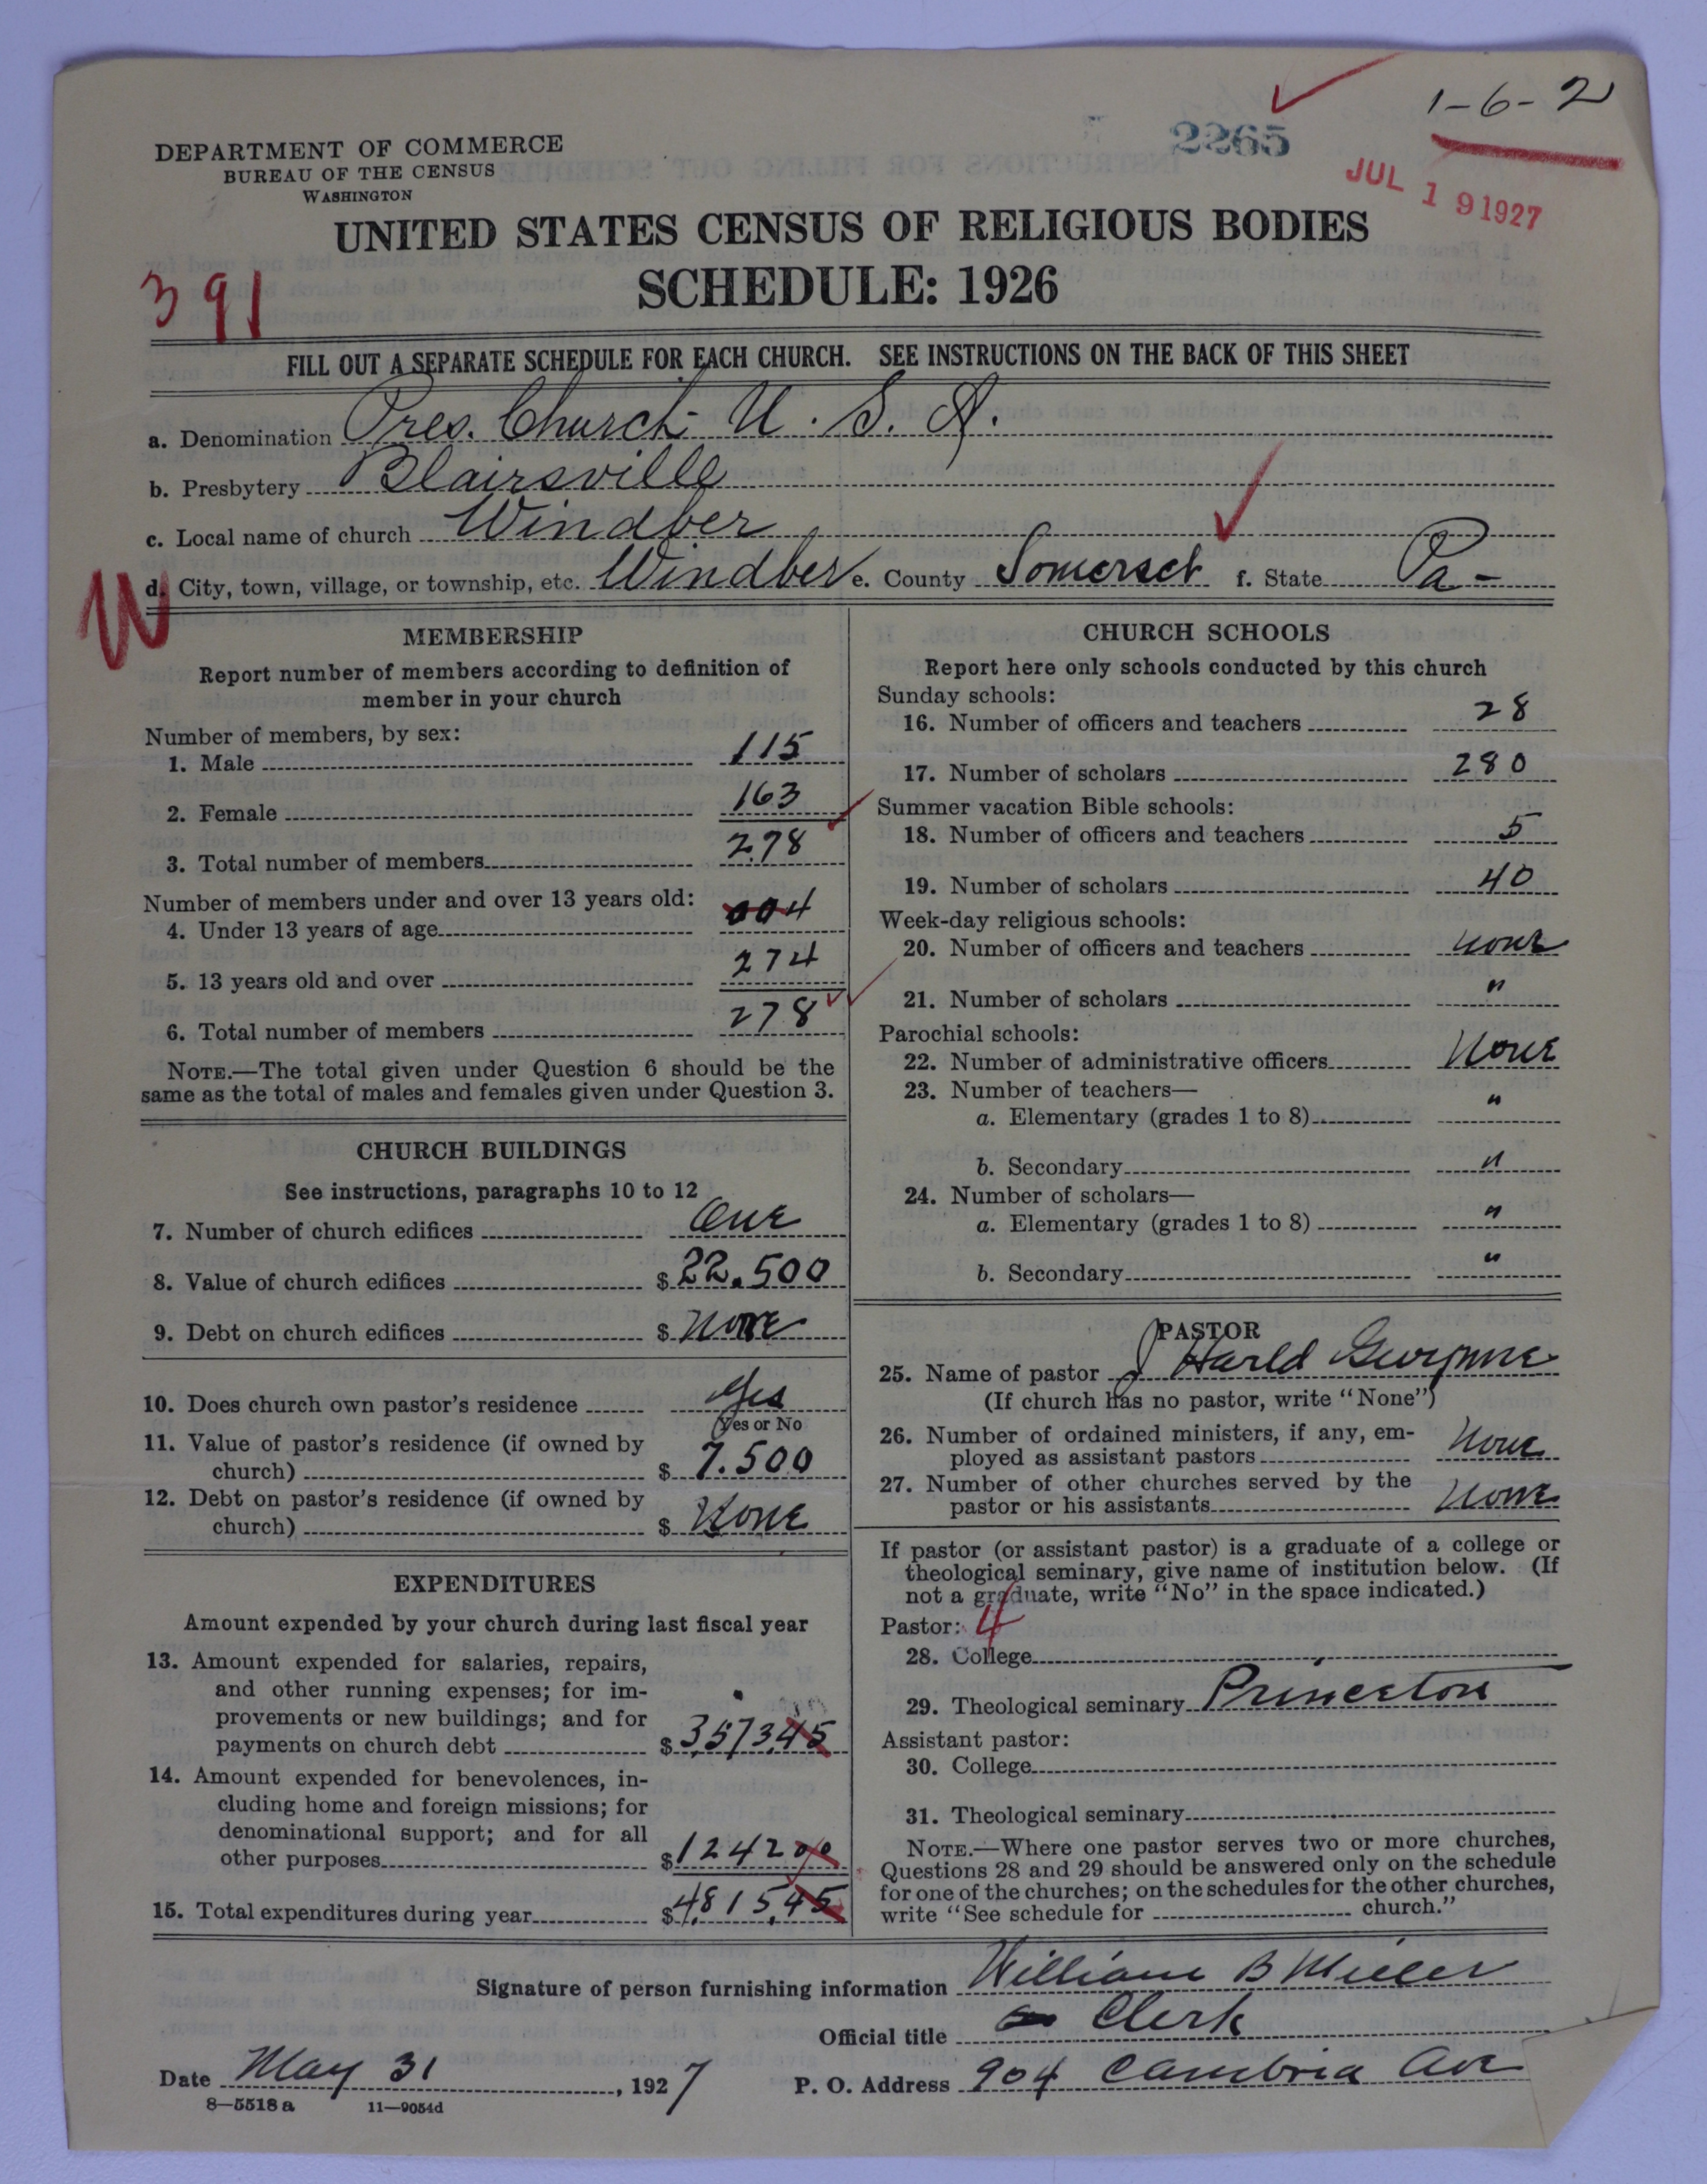 1-6-2
2265
JUL 19 1927
DEPARTMENT OF COMMERCE
BUREAU OF THE CENSUS
WASHINGTON
UNITED STATES CENSUS OF RELIGIOUS BODIES
SCHEDULE: 1926
391
FILL OUT A SEPARATE SCHEDULE FOR EACH CHURCH. SEE INSTRUCTIONS ON THE BACK OF THIS SHEET
a. Denomination Pres. Church U. S. A.
b. Presbytery Blairsville
c. Local name of church Windber
W
d. City, town, village, or township, etc. Windber e. County Somerset f. State Pa-
MEMBERSHIP
Report number of members according to definition of
member in your church
Number of members, by sex:
1. Male 115
2. Female 163
3. Total number of members 278
Number of members under and over 13 years old:
4. Under 13 years of age 004
5. 13 years old and over 274
6. Total number of members 278
NOTE.—The total given under Question 6 should be the
same as the total of males and females given under Question 3.
CHURCH BUILDINGS
See instructions, paragraphs 10 to 12
7. Number of church edifices One
8. Value of church edifices $ 22.500
9. Debt on church edifices $ None
10. Does church own pastor's residence Yes
Yes or No
11. Value of pastor's residence (if owned by
church) $ 7.500
12. Debt on pastor's residence (if owned by
church) $ None
EXPENDITURES
Amount expended by your church during last fiscal year
13. Amount expended for salaries, repairs,
and other running expenses; for im-
provements or new buildings; and for
payments on church debt $ 3,573,45
14. Amount expended for benevolences, in-
cluding home and foreign missions; for
denominational support; and for all
other purposes $ 1242 00
15. Total expenditures during year $ 4,815,45
CHURCH SCHOOLS
Report here only schools conducted by this church
Sunday schools:
16. Number of officers and teachers 28
17. Number of scholars 280
Summer vacation Bible schools:
18. Number of officers and teachers 5
19. Number of scholars 40
Week-day religious schools:
20. Number of officers and teachers none
21. Number of scholars "
Parochial schools:
22. Number of administrative officers None
23. Number of teachers—
a. Elementary (grades 1 to 8) "
b. Secondary "
24. Number of scholars—
a. Elementary (grades 1 to 8) "
b. Secondary "
PASTOR
25. Name of pastor J Harld Gwynne
(If church has no pastor, write "None")
26. Number of ordained ministers, if any, em-
ployed as assistant pastors None
27. Number of other churches served by the
pastor or his assistants None
If pastor (or assistant pastor) is a graduate of a college or
theological seminary, give name of institution below. (If
not a graduate, write "No" in the space indicated.)
Pastor: 4
28. College
29. Theological seminary Princeton
Assistant pastor:
30. College
31. Theological seminary
NOTE.—Where one pastor serves two or more churches,
Questions 28 and 29 should be answered only on the schedule
for one of the churches; on the schedules for the other churches,
write "See schedule for church."
Signature of person furnishing information William B Miller
Official title Clerk
Date May 31, 1927 P. O. Address 904 Cambria Ave
8—5518 a 11—9054d